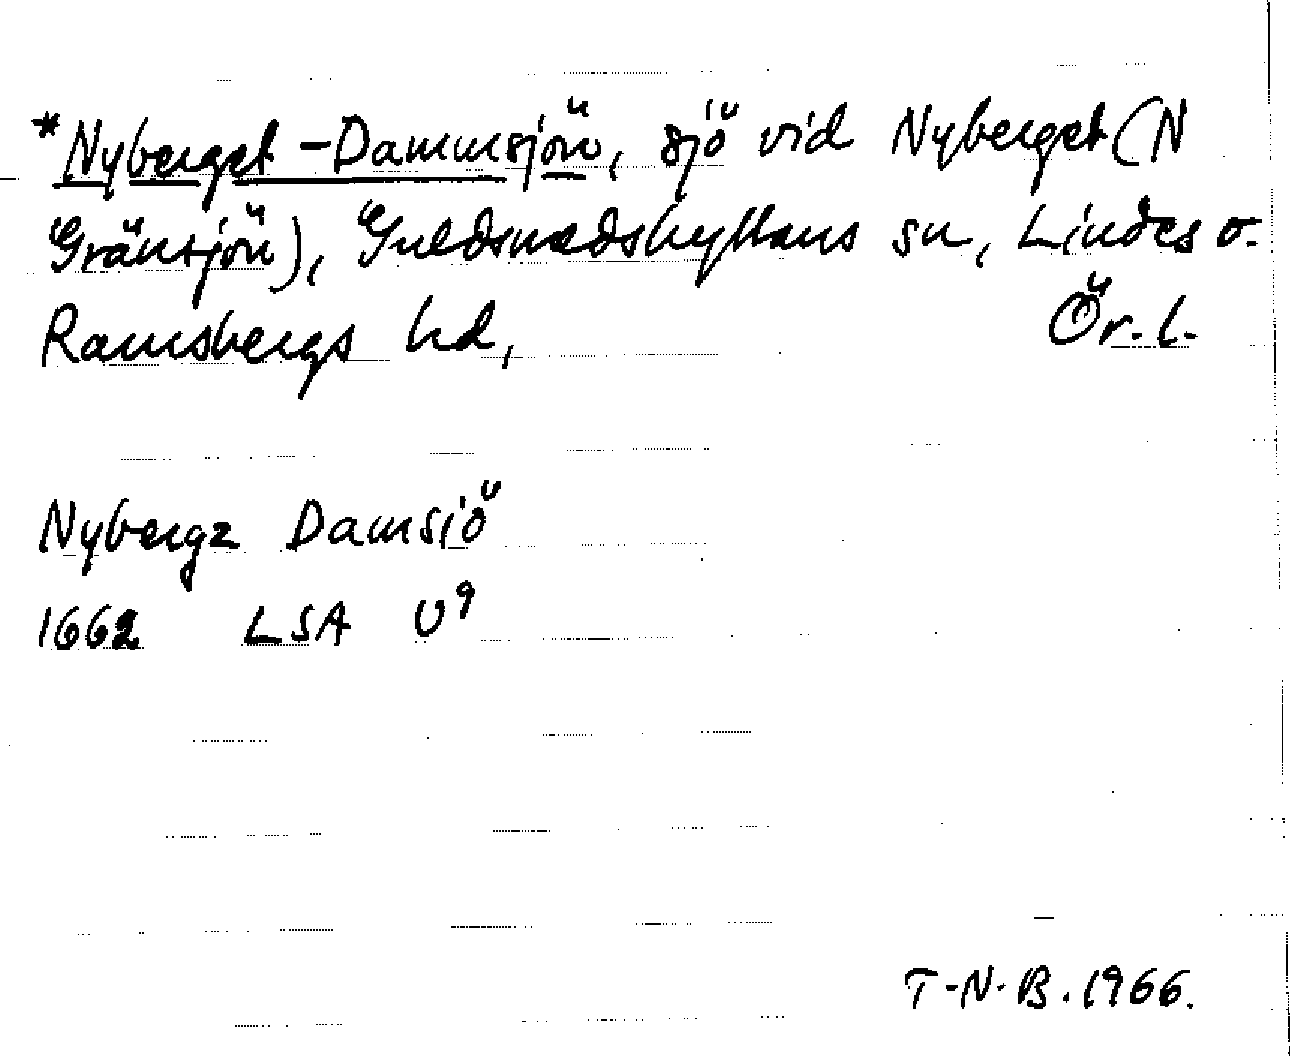 *Nyberget-Dammsjön, sjö vid Nyberget (N
Gränsjön), Guldsmedshyttans sn, Lindes o.
Ramsbergs hd, Ör. l.
Nybergz Damsiö
1662 LSA U9
T-N-B. 1966.